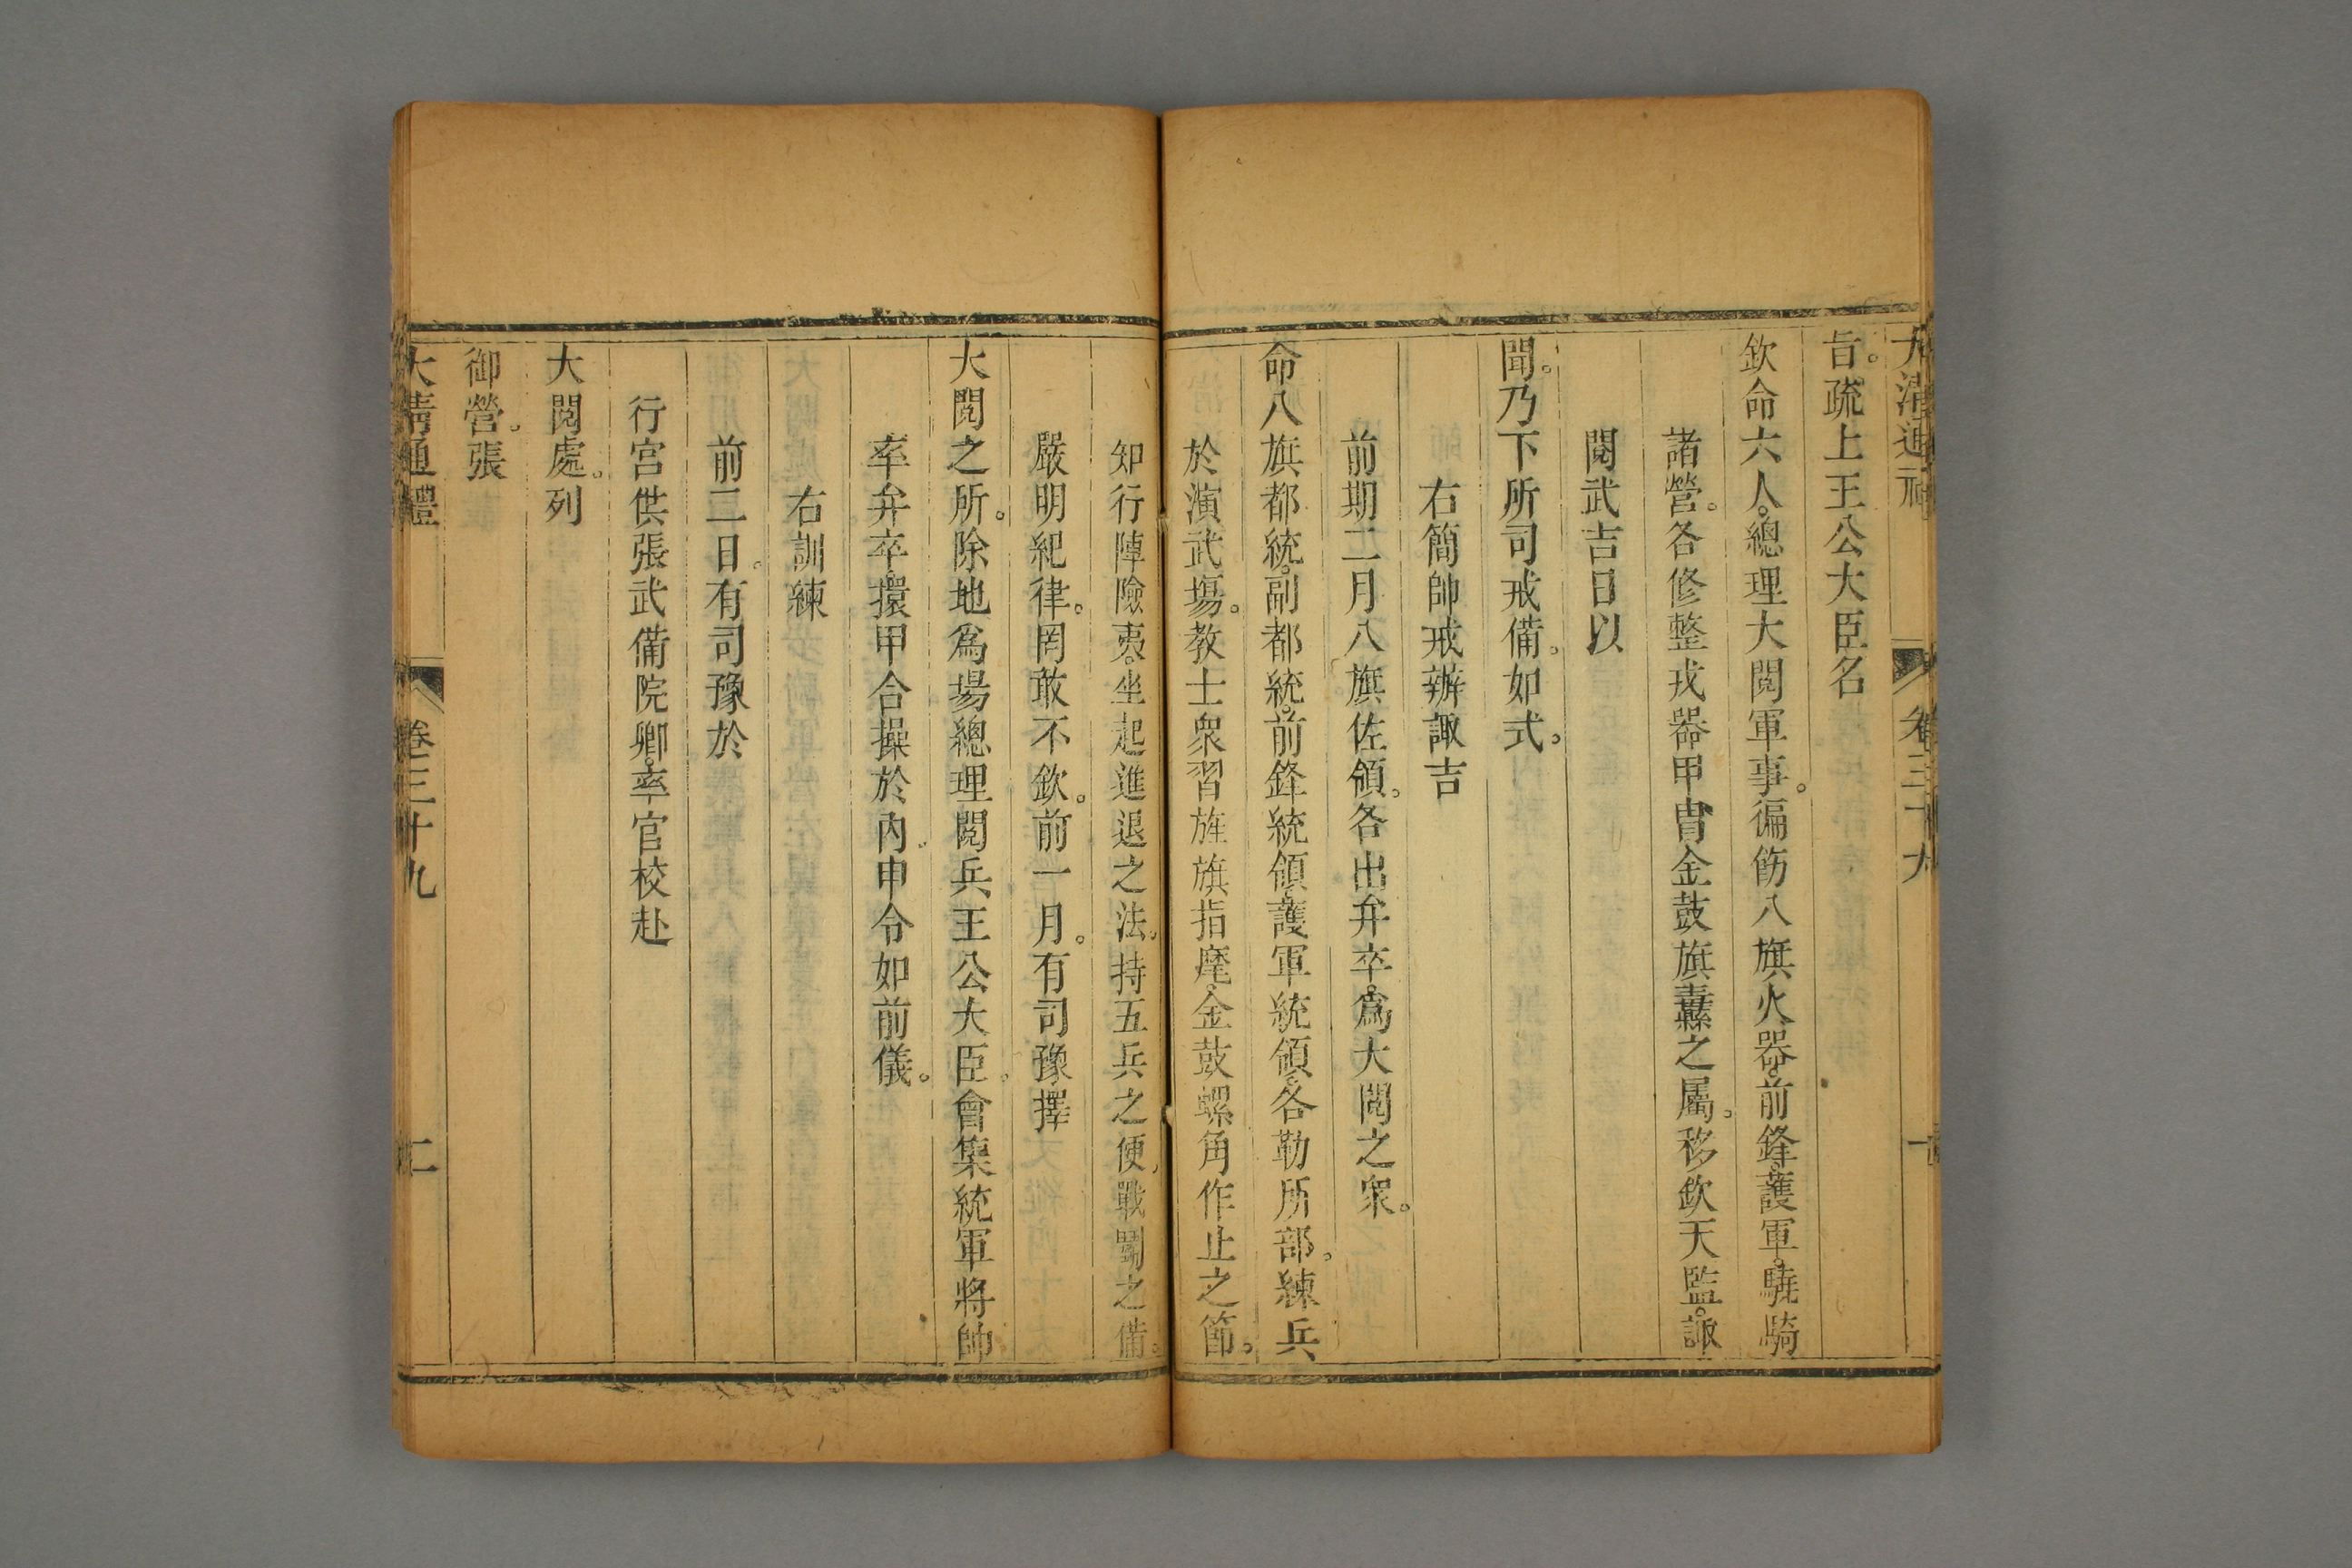 大清通禮 卷三十九 一
旨。疏上王公大臣名
欽命六人。總理大閱軍事。徧飭八旗火器。前鋒。護軍。驍騎
諸營。各修整戎器甲冑金鼓旗纛之屬。移欽天監。諏
閱武吉日以
聞。乃下所司戒備。如式。
右簡帥戒辦諏吉
前期二月八旗佐領。各出弁卒。爲大閱之衆。
命八旗都統。副都統。前鋒統領。護軍統領。各勒所部。練兵
於演武塲。教士衆習旌旗指麾。金鼓螺角作止之節。
知行陣險夷。坐起進退之法。持五兵之便。戰鬭之備。
嚴明紀律。罔敢不欽。前一月。有司豫擇
大閱之所。除地爲場總理閱兵王公大臣。會集統軍將帥
率弁卒。擐甲合操於內。申令如前儀。
右訓練
前二日。有司豫於
行宮供張武備院卿。率官校赴
大閱處。列
御營。張
大清通禮 卷三十九 二